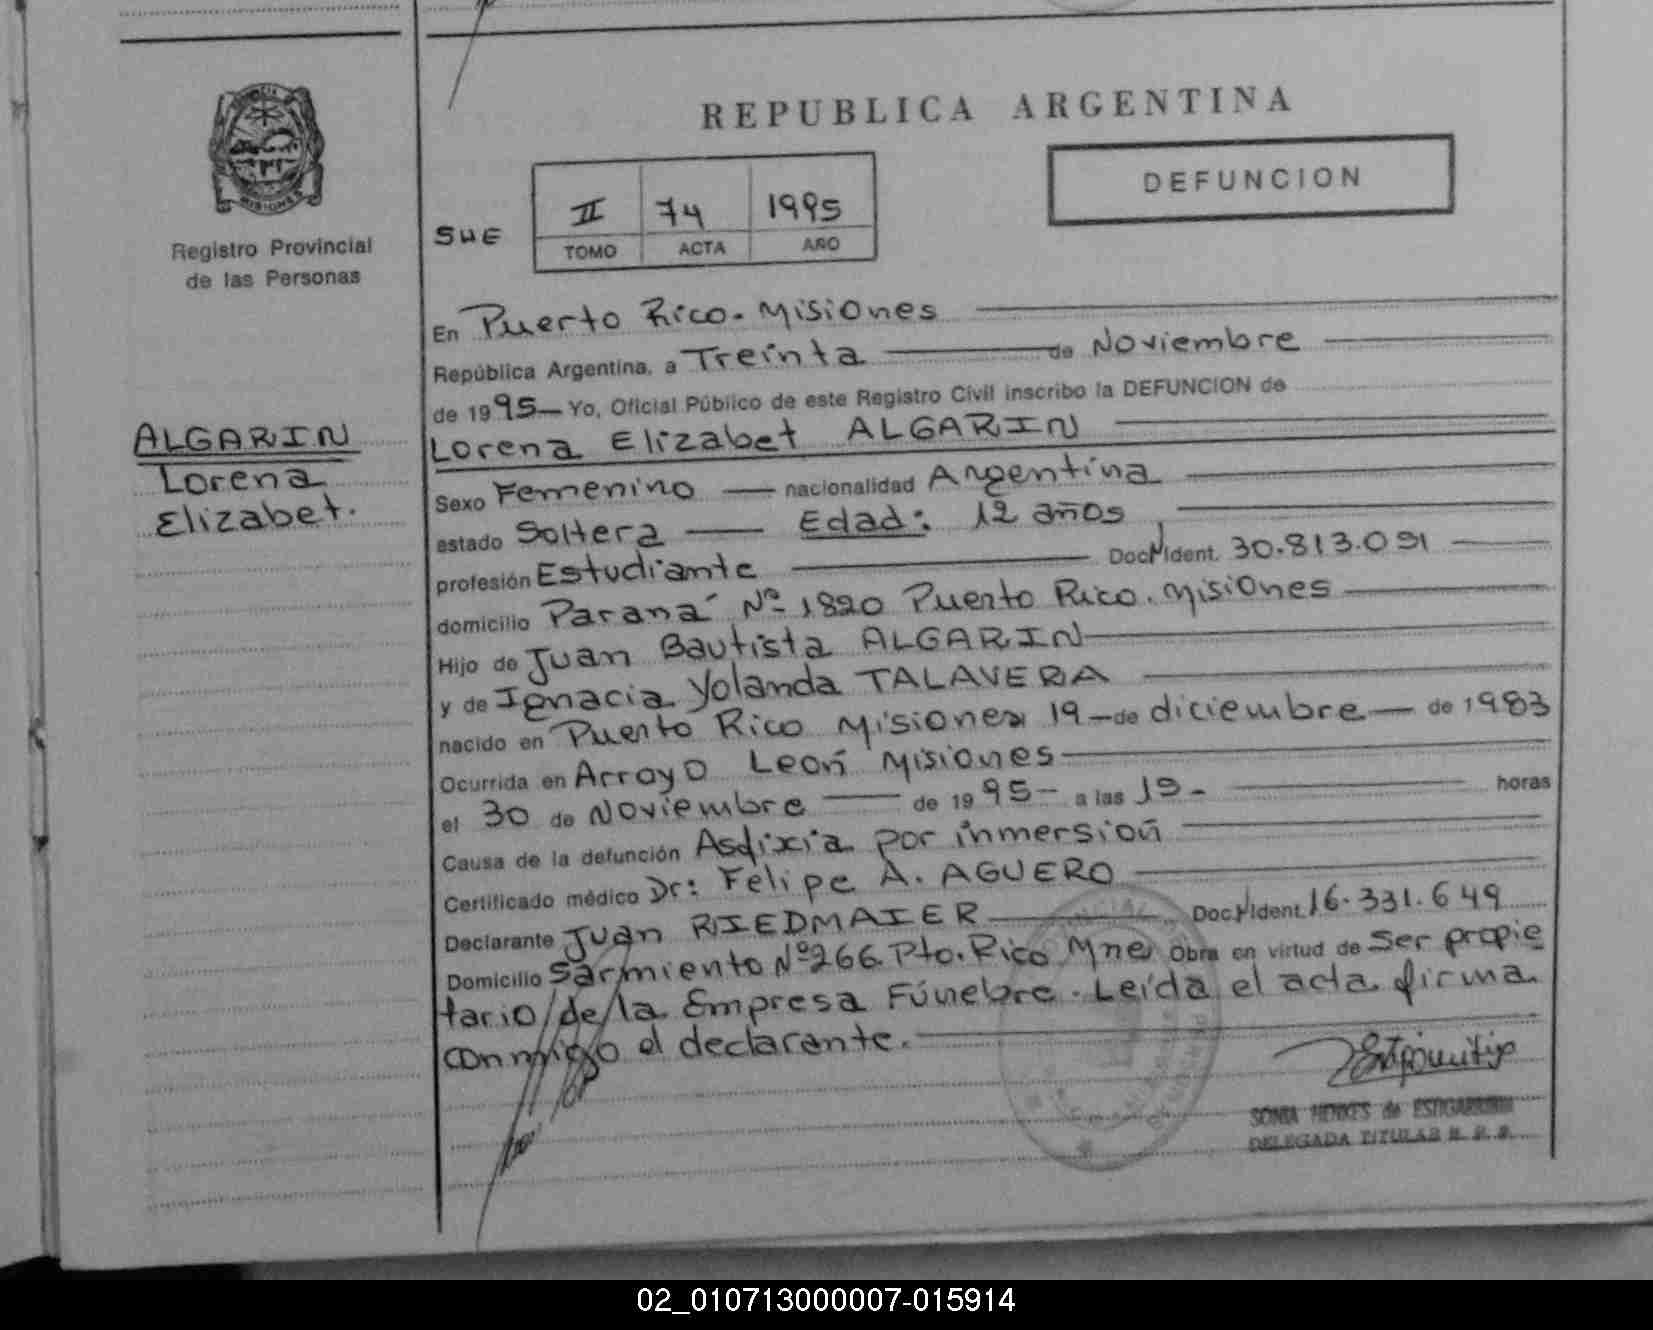 PROVINCIA
MISIONES
Registro Provincial
de las Personas
ALGARIN
Lorena
Elizabet.
REPUBLICA ARGENTINA
DEFUNCION
SHE
II 74 1995
TOMO ACTA AÑO
En Puerto Rico. Misiones
República Argentina, a Treinta de Noviembre
de 1995 Yo, Oficial Público de este Registro Civil inscribo la DEFUNCION de
Lorena Elizabet ALGARIN
Sexo Femenino nacionalidad Argentina
estado Soltera Edad: 12 años
profesión Estudiante Doc. Ident. 30.813.091
domicilio Paraná Nº 1820 Puerto Rico. Misiones
Hijo de Juan Bautista ALGARIN
y de Ignacia Yolanda TALAVERA
nacido en Puerto Rico Misiones 19 de diciembre de 1983
Ocurrida en Arroyo León Misiones
el 30 de Noviembre de 1995 a las 19 horas
Causa de la defunción Asfixia por inmersión
Certificado médico Dr: Felipe A. AGUERO
Declarante Juan RIEDMAIER Doc. Ident. 16.331.649
Domicilio Sarmiento Nº 266. Pto. Rico Mnes Obra en virtud de Ser propie
tario de la Empresa Fúnebre. Leída el acta firma
conmigo el declarante.
SONIA HENKES de ESTIGARRIBIA
DELEGADA TITULAR R. P. P.
02_010713000007-015914